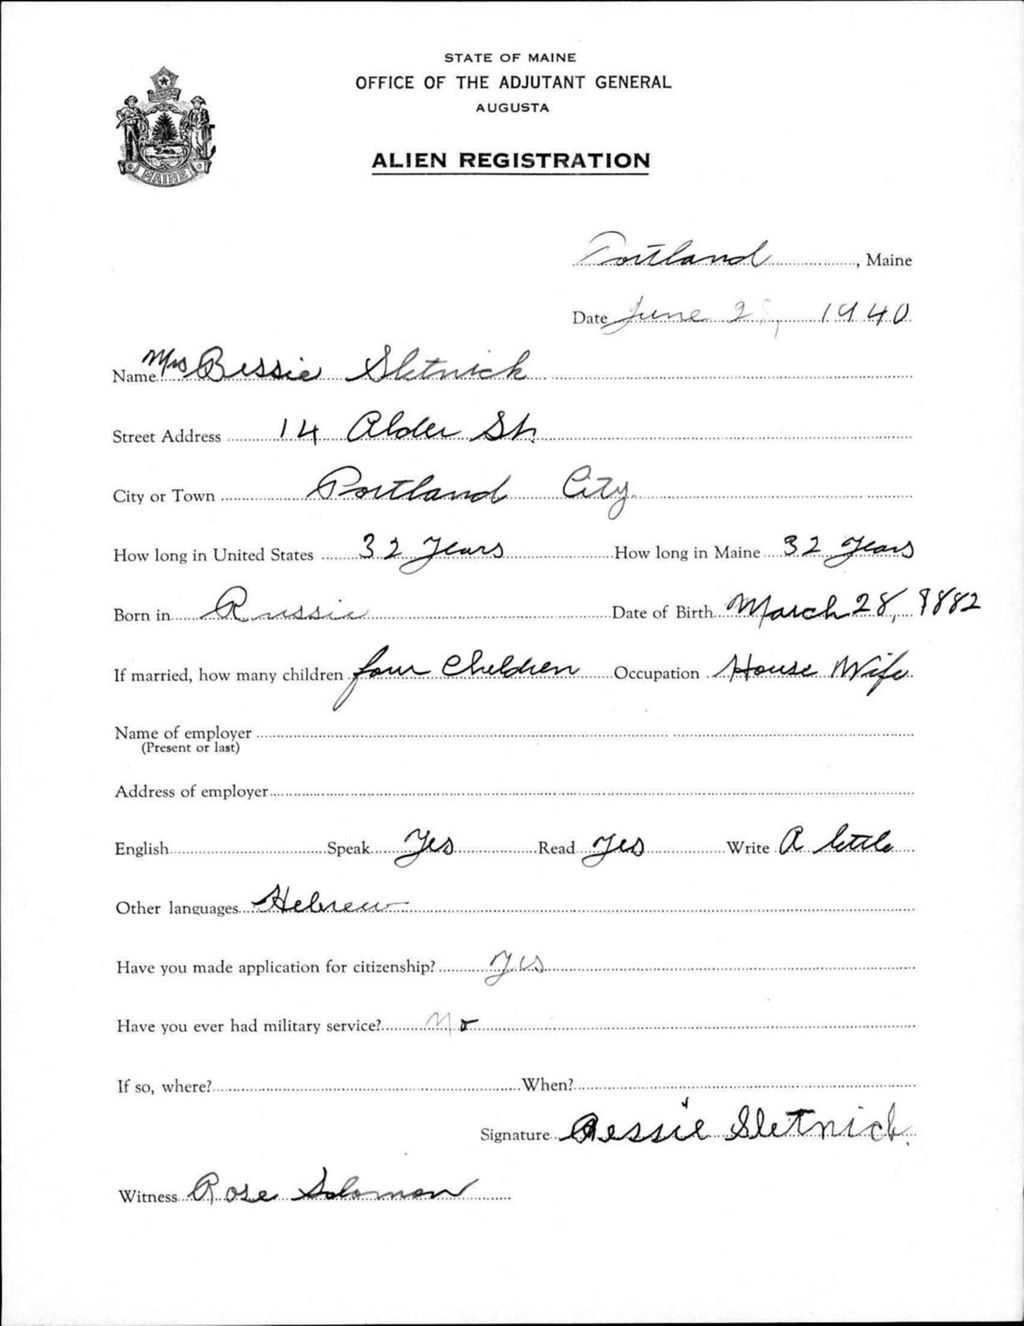 STATE OF MAINE
OFFICE OF THE ADJUTANT GENERAL
AUGUSTA
ALIEN REGISTRATION
MAINE
Portland, Maine
Date June 2 , 1940
Name Mrs Bessie Sletnick
Street Address 14 Alder St.
City or Town Portland City.
How long in United States 32 Years How long in Maine 32 Years
Born in Russia Date of Birth March 28, 1882
If married, how many children four Children Occupation House Wife
Name of employer
(Present or last)
Address of employer
English Speak Yes Read Yes Write A little
Other languages Hebrew
Have you made application for citizenship? Yes
Have you ever had military service? No
If so, where? When?
Signature Bessie Sletnick.
Witness Rose Solomon